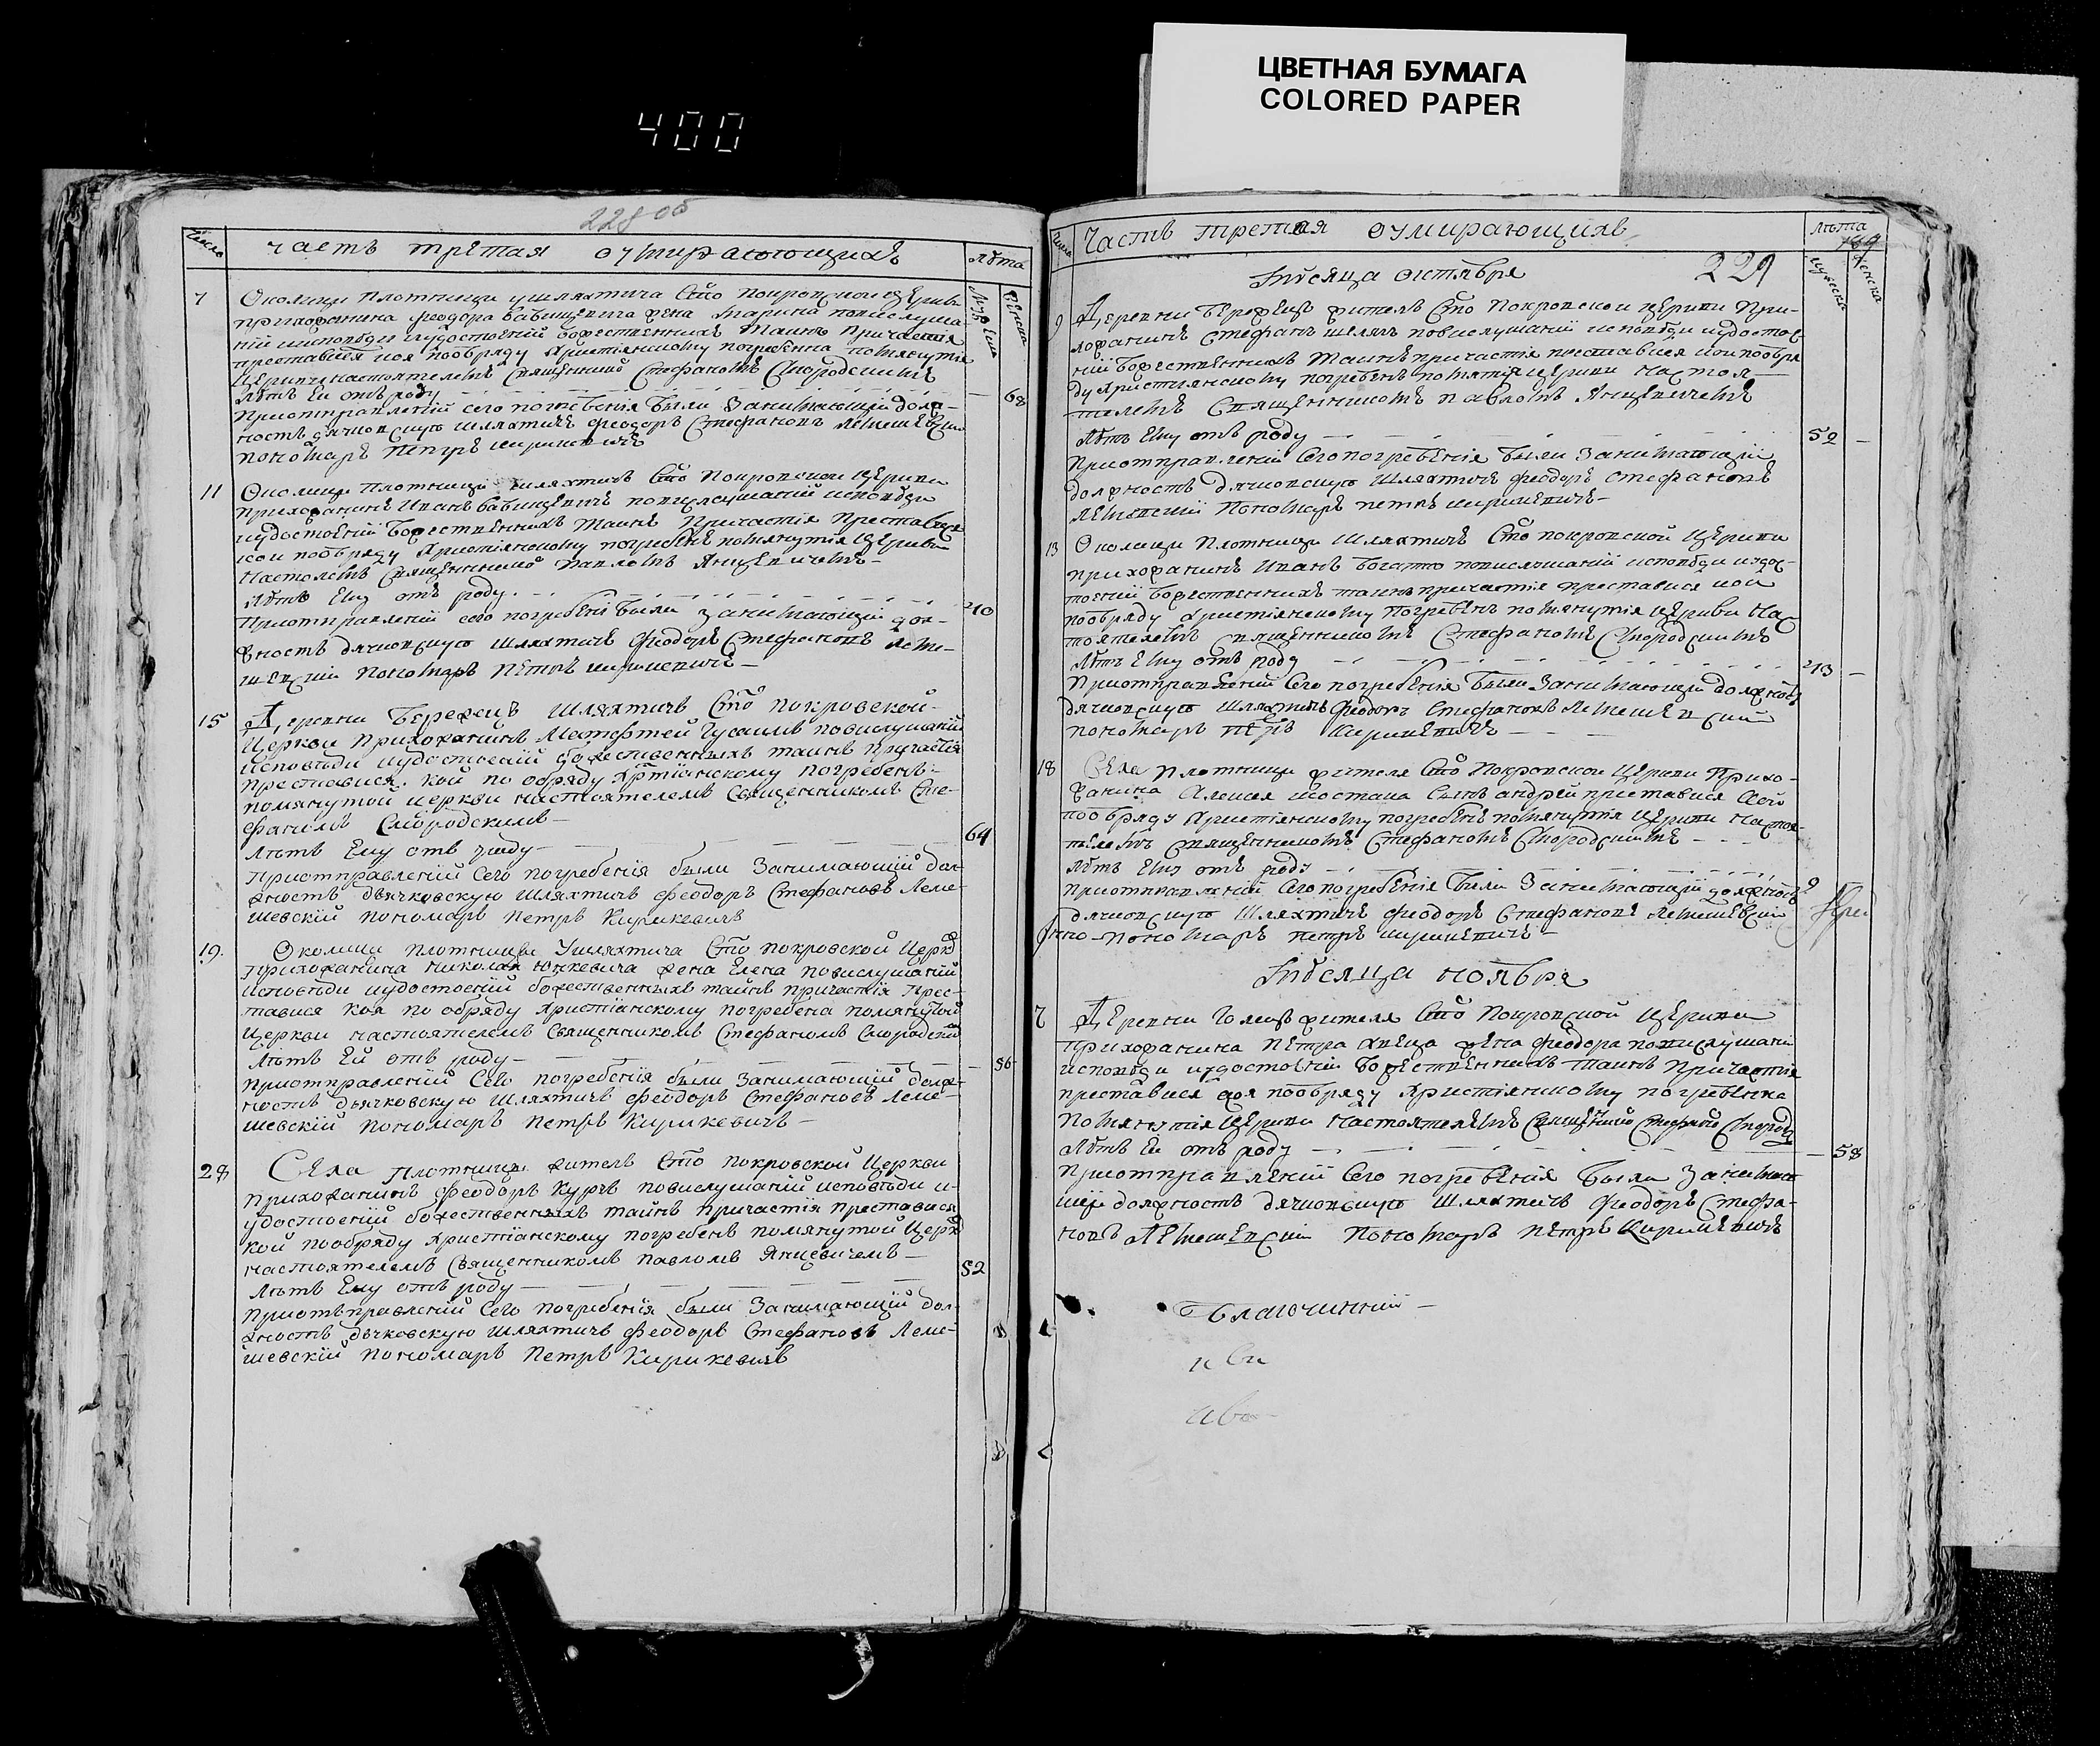 ЦВЕТНАЯ БУМАГА
COLORED PAPER
400
228 об
Число
часть третая оумирающихъ
Лѣта
Мужеска
Женска
7
Околици Плотници у шляхтича Сто Покровской церкви
прихожанина Феодора Бабицевича жена Марина повислуша-
ній исповѣди иудостоеній божественнихъ Таинъ Причастія
преставися коя пообряду Христіянскому погребенна помянутія
Церкви настоятелемъ Священникомъ Стефаномъ Смородскимъ
Лѣтъ Ей отъ роду
68
Приотправленій сего погребенія были Занимающій долж-
ность дячковскую шляхтичъ Феодоръ Стефановъ Лемешевскій
пономаръ Петръ Кирикевичъ
11
Околици Плотници шляхтичъ Сто Покровской Церкви
Прихожанинъ Иванъ Бабицевичъ повислушаній исповѣди
иудостоеній Божественнихъ Таинъ Причастія Преставися
кои пообряду Христіянскому погребенъ помянутія Церкви
Настолемъ Священникомъ Павломъ Янцевичемъ-
Лѣтъ Ему отъ роду
40
Приотправленій сего погребеній были занимающій дол-
жность дячковскую шляхтичъ Феодоръ Стефановъ Леме-
шевскій пономаръ Петръ Кирикевичъ-
15
Деревни Бережецъ шляхтичъ Сто Покровской-
Церкви Прихожанинъ Матфтей Гусаимъ повислушаній
исповѣди иудостоеній божественныхъ таинъ причастія
преставися. кой по обряду Хртіанскому погребенъ-
помянутой церкви настоятелемъ Священникомъ Сте-
фаномъ Смородскимъ-
Лѣтъ Ему отъ роду-
64
Приотправленій Сего погребенія были Занимающій дол-
жность дьячковскую шляхтичъ Феодоръ Стефановъ Леме-
шевскій пономаръ Петръ Кирикевичъ
19.
Околици Плотници Ушляхтича Сто Покровской Церкв
Прихожанина Николая Юнкевича жена Елена повислушаній
исповѣди иудостоеній божественныхъ таинъ причастія Прес-
тавися коя по обряду Христіанскому погребена помянутой
Церкви настоятелемъ Священникомъ Стефаномъ Смородскимъ
Лѣтъ Ей отъ роду-
56
Приотправленій Сего погребенія были Занимающій долж-
ность дьячковскую шляхтичъ Феодоръ Стефановъ Леме-
шевскій пономаръ Петръ Кирикевичъ-
28
Села Плотници жителъ Сто Покровской Церкви
Прихожанинъ Феодоръ Куръ повислушаній исповѣди и-
удостоеній божественныхъ таинъ причастія преставися
кой пообряду Христіанскому погребенъ помянутой Церкв
настоятелемъ Священникомъ Павломъ Янцевичемъ-
Лѣтъ Ему отъ роду-
52
Приотъправленій Сего погребенія были Занимающій дол-
жность дьчковскую шляхтичъ Феодоръ Стефановъ Леме-
шевскій пономаръ Петръ Кирикевичъ
Число
Часть третая оумирающихъ
Лѣта
229
мужеска
женска
Мѣсяца октября
9
Деревни Бережецъ жителъ Сто Покровской церкви При-
хожанинъ Стефанъ повислушаній исповѣди иудостое
ній Божественнихъ Таинъ причастія преставися кои пообря
ду Христіянскому погребенъ помятія церкви Настоя-
телемъ Священникомъ Павломъ Янцевичемъ
Лѣтъ Ему отъ роду
52
Приотправленій Сего погребенія были Занимающій
должность дячковскую Шляхтичъ Феодоръ Стефановъ
Лемевский Пономаръ петръ кирикевичъ-
13
Околици Плотници Шляхтичъ Сто покровской Церкви
прихожанинъ Иванъ Богатко повислушаній исповѣди иудос-
тоеній Божественнихъ таинъ причастія преставися кои
пообряду Христіянскому погребенъ помянутія церкви Нас
тоятелемъ священникомъ Стефаномъ Смородскимъ
Лѣтъ Ему отъ роду
43
Приотправленій Сего погребенія были Занимающій должность
дячковскую Шляхтичъ Феодоръ Стефановъ Лемешевский
пономаръ петръ Кирикевичъ
18
Села Плотници жителя Сто Покровской Церкви Прихо-
жанина Алексея Костана Сынъ андрей преставися кой
пообряду Христіянскому погребенъ помянутія Церкви Настоя-
телемъ Священникомъ Стефаномъ Смородскимъ
Лѣтъ Ему отъ роду
2
Приотправленій Сего погребенія были Занимающій должность
дячковскую Шляхтичъ Феодоръ Стефановъ Лемешевскій
пономаръ петръ кирикевичъ-
Мѣсяца ноября
7
Деревни Голецъ жителя Сто Покровской Церкви
Прихожанина Петра жена Феодора повислушаній
исповѣди иудостоеній Божественнихъ Таинъ Причастія
преставися коя пообряду Христіянскому погребенна
Помянутія Церкви Настоятелемъ
Лѣтъ Ей отъ роду
58
Приотправленій Сего погребенія были Занимаю
щій должность дячковскую Шляхтичъ Феодоръ Стефа-
новъ Лемешевскій Пономаръ Петръ Кирикевичъ
Благочинній-